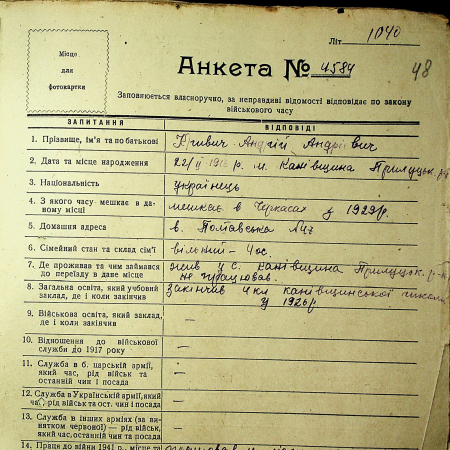 Літ 1040
Місце
для
фотокартки
Анкета № 4584
48
Заповнюється власноручно, за неправдиві відомості відповідає по закону
військового часу
ЗАПИТАННЯ ВІДПОВІДІ
1. Прізвище, ім'я та по батькові Андрій Андрієвич
2. Дата та місце народження 22/II Канівщина Прилуцьк.
3. Національність українець
4. З якого часу мешкає в да-
ному місці мешкає в Черкасах з 1929р.
5. Домашня адреса в. Полтавська №47
6. Сімейний стан та склад сім'ї вільний – 4 ос.
7. Де проживав та чим займався
до переїзду в дане місце жив у с. Канівщина Прилуцьк. р-н
не працював.
8. Загальна освіта, який учбовий
заклад, де і коли закінчив закінчив 4 кл канівщинської школи
у 1926р.
9. Військова освіта, який заклад,
де і коли закінчив —
10. Відношення до військової
служби до 1917 року —
11. Служба в б. царській армії,
який час, рід військ та
останній чин і посада —
12. Служба в Українській армії, який
час, рід військ та ост. чин і посада —
13. Служба в інших арміях (за ви-
нятком червоної) — рід військ,
який час, останній чин та посада —
14. Праця до війни 1941 р., місце та